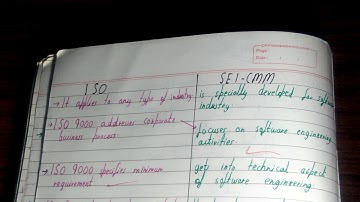 Page:
Date:
ISO
SEI-CMM
→ It applies to any type of industry
is specially developed for software
industry
→ ISO 9000 addresses corporate
business process
focuses on software engineering
activities
→ ISO 9000 specifies minimum
requirement
gets into technical aspect
of software engineering